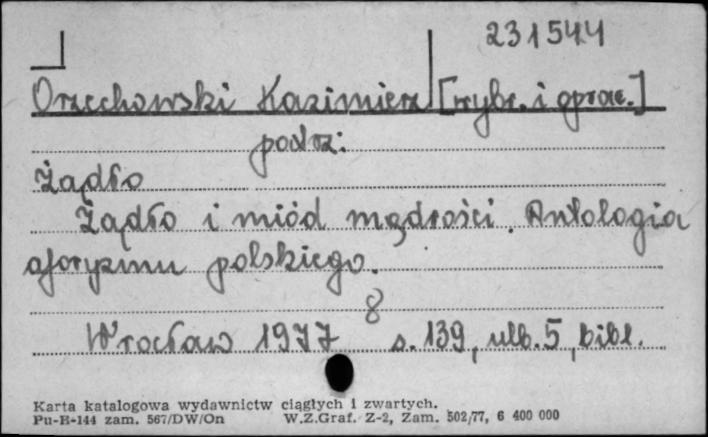 231544
Orzechowski Kazimierz [wybr. i oprac.]
patrz:
Żądło
Żądło i miód mądrości. Antologia
aforyzmu polskiego.
8
Wrocław 1977 s. 139, nlb. 5, bibl.
Karta katalogowa wydawnictw ciągłych i zwartych.
Pu-K-144 zam. 567/DW/On W.Z.Graf. Z-2, Zam. 502/77, 6 400 000